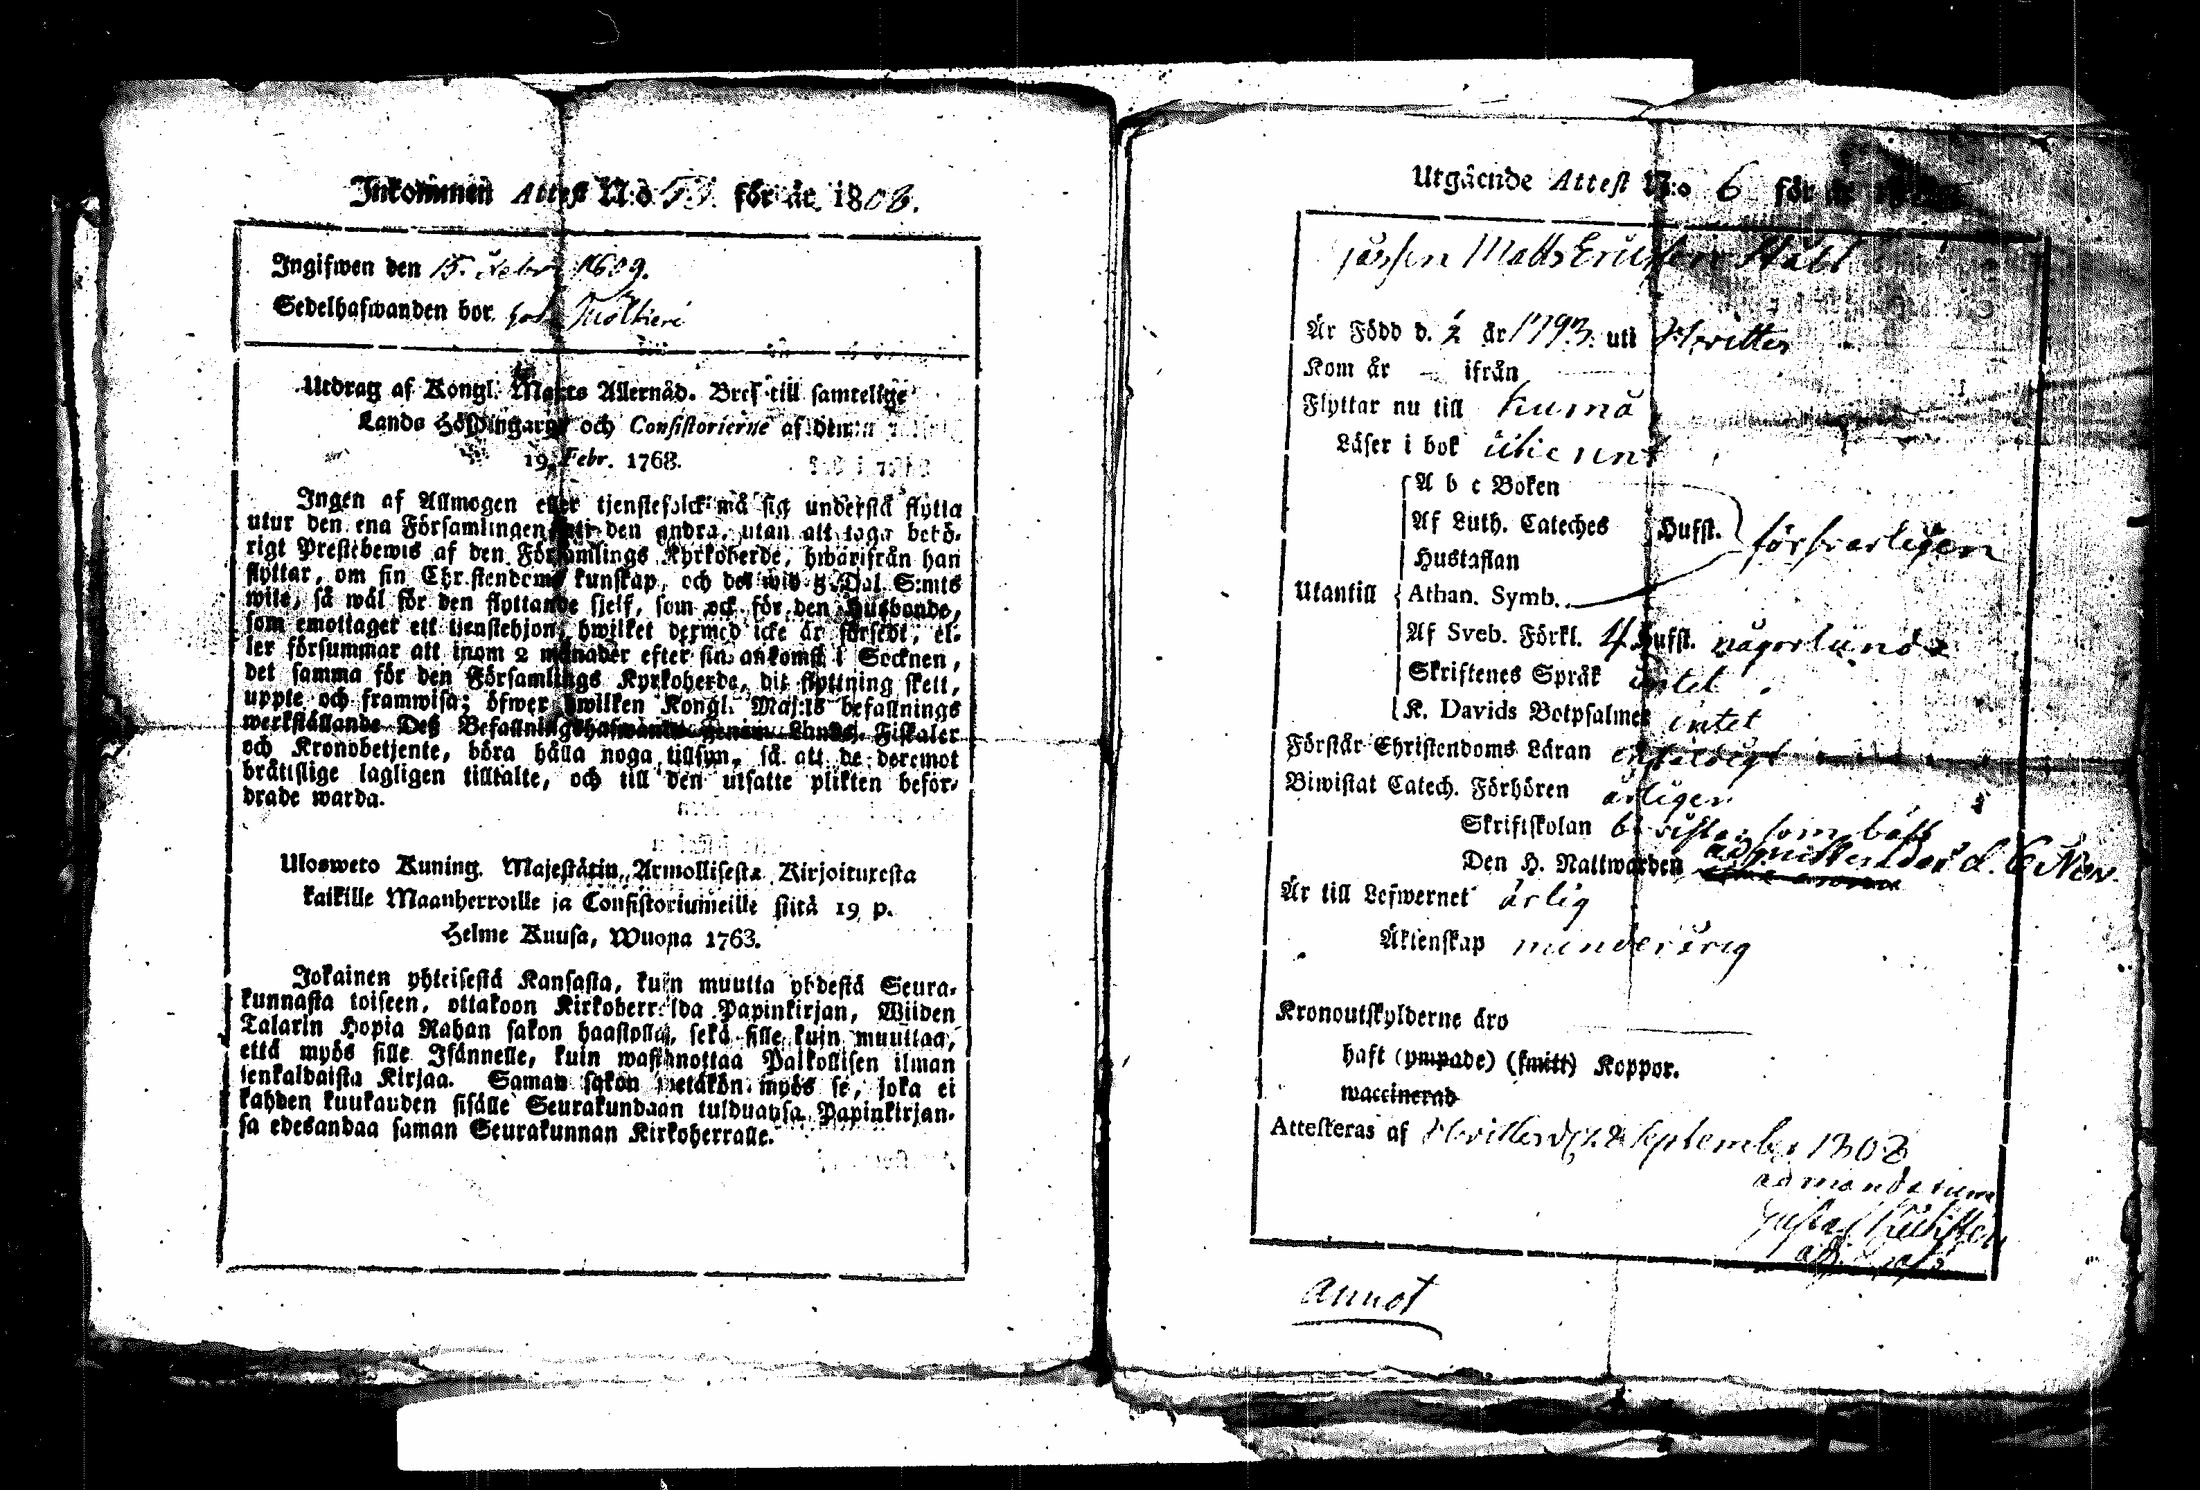 Inkommen Attest N:o 53. för år 1808.
Ingifwen den 15. Febr. 1809.
Sedelhafwanden bor hos
Utdrag af Kongl. Maj:ts Allernåd. Bref till samtelige
Lands Höfdingarne och Consistorierne af den
19. Febr. 1768.
Ingen af Allmogen eller tjenstefolck må sig understå flytta
utur den ena Församlingen uti den andra, utan att taga behö-
rigt Prestebewis af den Församlings Kyrkoherde, hwarifrån han
flyttar, om sin Christendoms kunskap, och det wid 5. Dal. S:mts
wite, så wäl för den flyttande sjelf, som ock för den Husbonde,
som emottaget ett tjenstehjon, hwilket dermed icke är försedt, el-
ler försummar att inom 2 månader efter sin ankomst i Socknen,
det samma för den Församlings Kyrkoherde, dit flyttning skett,
uppte och framwisa; öfwer hwilken Kongl. Maj:ts befallnings
werkställande Deß Befallningshafwande genom Lands Fiskaler
och Kronobetjente, böra hålla noga tillsyn, så att de deremot
bråttslige lagligen tilltalte, och till den utsatte plikten befor-
drade warda.
Ulosweto Kuning. Majestätin Armollisesta Kirjoituxesta
kaikille Maanherroille ja Consistoriumeille siitä 19 p.
Helme Kuusa, Wuona 1763.
Jokainen yhteisestä Kansasta, kuin muutta yhdestä Seura-
kunnasta toiseen, ottakoon Kirkoherralda Papinkirjan, Wiiden
Talarin Hopia Rahan sakon haastolla, sekä sille kuin muuttaa,
että myös sille Isännelle, kuin wastanottaa Palkollisen ilman
senkaldaista Kirjaa. Saman sakon wetäkön myös se, joka ei
kahden kuukauden sisälle Seurakundaan tulduansa Papinkirjan-
sa edesandaa saman Seurakunnan Kirkoherralle.
Utgående Attest N:o 6 för år
Matts Ericsson Ståhl
Är Född d. 2 år 1793. uti Hvittis
Kom år — ifrån
Flyttar nu till Kumo
Läser i bok
A b c Boken
Af Luth. Cateches Hufst. försvarligen
Hustaflan
Utantill Athan. Symb.
Af Sveb. Förkl. 4 Hufst. någorlunda
Skriftenes Språk intet
K. Davids Botpsalmer intet
Förstår Christendoms Läran enfaldigt
Biwistat Catech. Förhören årligen
Skriftskolan
Den H. Nattwarden admitterades d. 6 Nov.
Är till Lefwernet ärlig
Äktenskap minderårig
Kronoutskylderne äro
haft (ympade) (smitt) Koppor.
waccinerad
Attesteras af Hvittis d. 28 September 1808
ad mandatum
Gustaf
annot